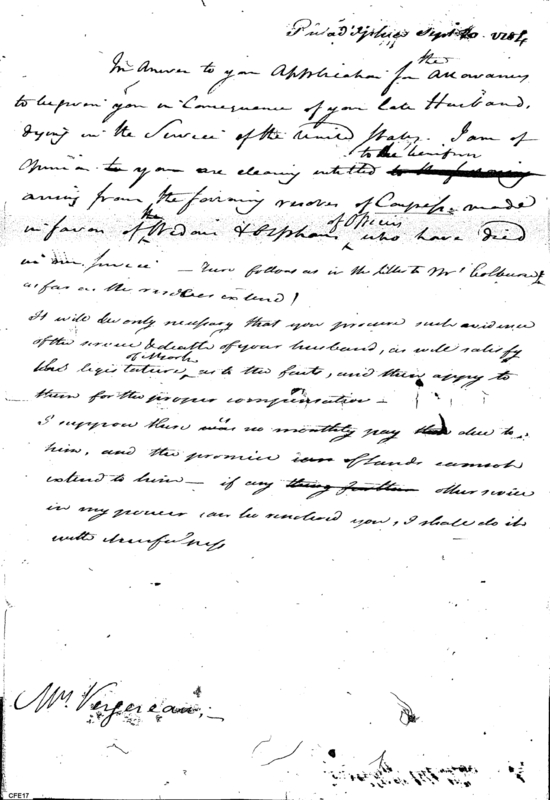 Philadelphia Sept. 10. 1784
In Answer to your Application for the allowances
to be given you in Consequence of your late Husband,
dying in the Service of the United States. I am of
Opinion to you are clearly intitled to the benefits
arising from the farming resolves of Congress made
in favor of the Widows & Orphans of Officers who have died
in our Service — Then follows as in the letter to Mrs.
as far as the resolves extend!
It will be only necessary that you procure such evidence
of the service & death of your husband, as will satisfy
the legislature of N York as to the facts, and then apply to
them for the proper compensation —
I suppose there was no monthly pay due to
him, and the promise of lands cannot
extend to him — if any thing further other service
in my power can be rendered you, I shall do it
with chearfulness
Mrs. Vergereau; —
CFE17